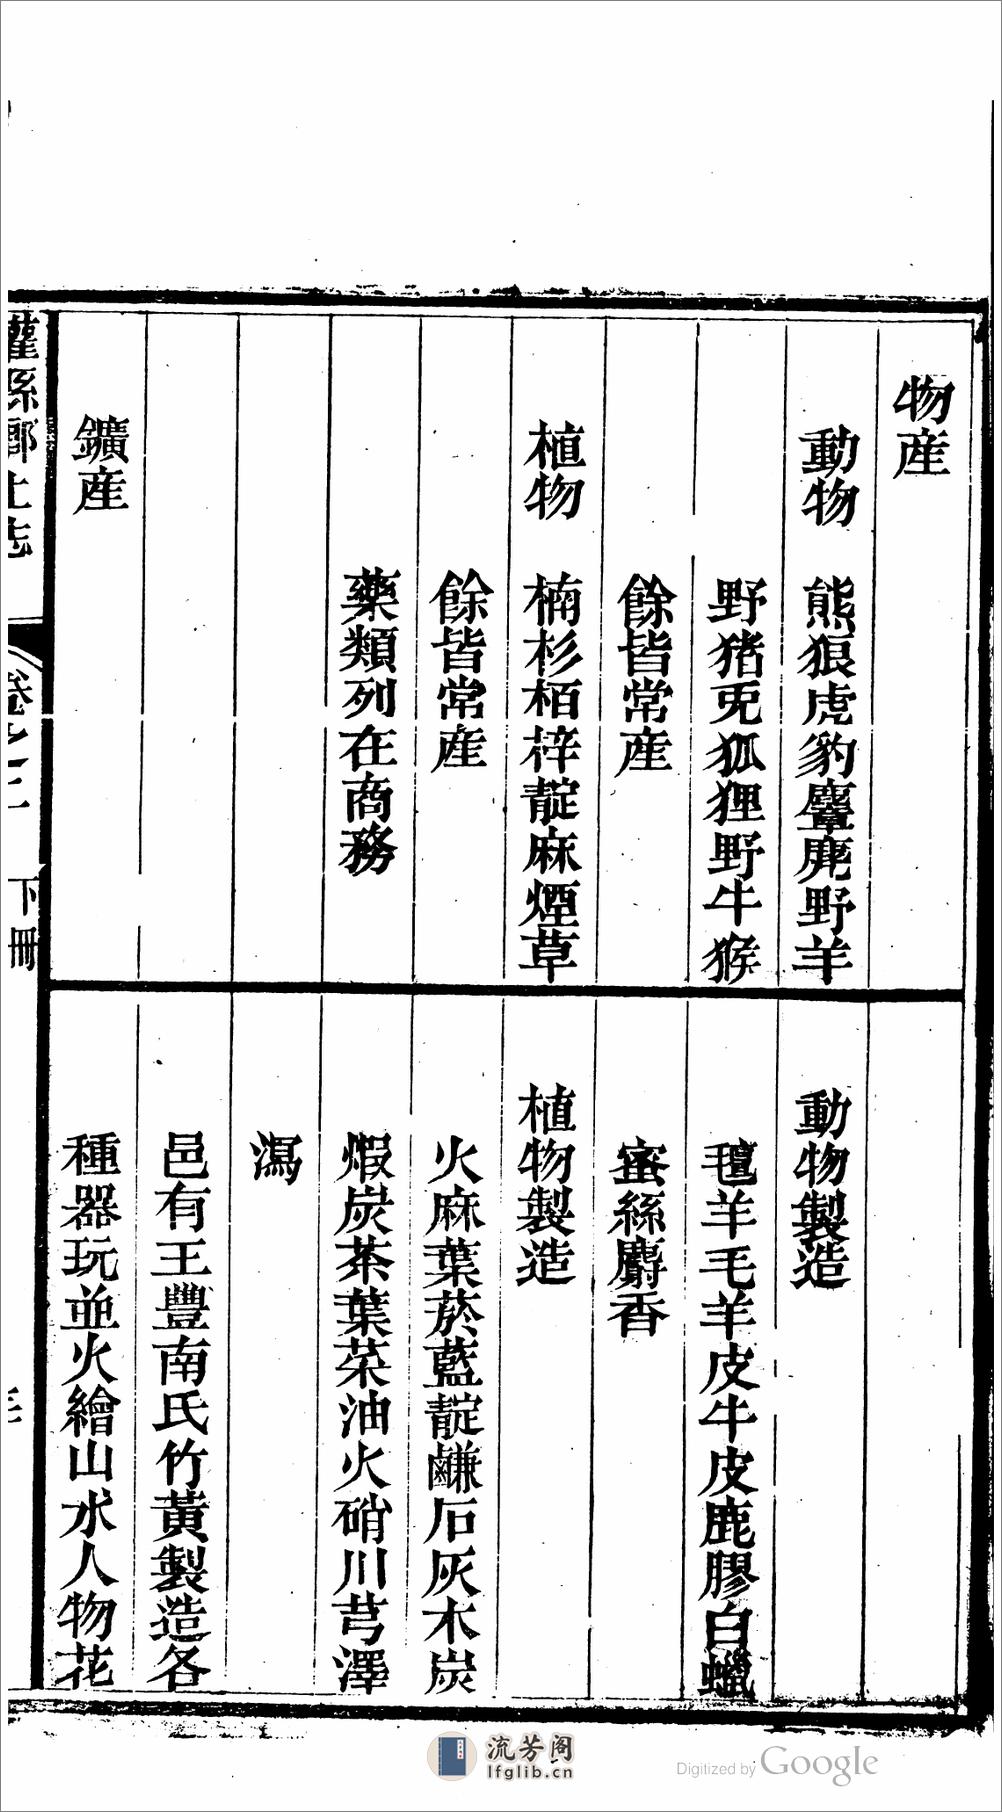 物産
動物　熊狼虎豹麞麂野羊
野猪兎狐狸野牛猴
餘皆常産
植物　楠杉栢梓靛麻煙草
餘皆常産
藥類列在商務
鑛産
動物製造
毡羊毛羊皮牛皮鹿膠白蠟
蜜絲麝香
植物製造
火麻葉菸藍靛鹻石灰木炭
煆炭茶葉菜油火硝川芎澤
瀉
邑有王豐南氏竹黃製造各
種器玩並火繪山水人物花
灌縣鄉土志
卷之二
下冊
流芳阁
lfglib.cn
Digitized by Google